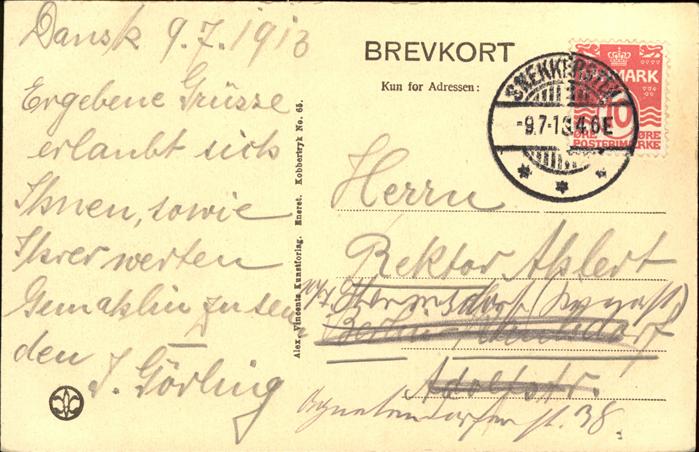 Dansk 9.7.1913
Ergebene Grüsse
erlaubt sich
Ihnen, sowie
Ihrer werten
Gemahlin zu sen
den
J. Görling
Alex. Vincents Kunstforlag. Eneret. Kobbertryk No. 65.
BREVKORT
Kun for Adressen:
SNEKKERSTEN
-9.7-13.4.6E
MARK
10
ØRE ØRE
POSTFRIMÆRKE
Herrn
Rektor Ahlert
Berlin
Adolfstr.
Agnetendorfer st. 38.